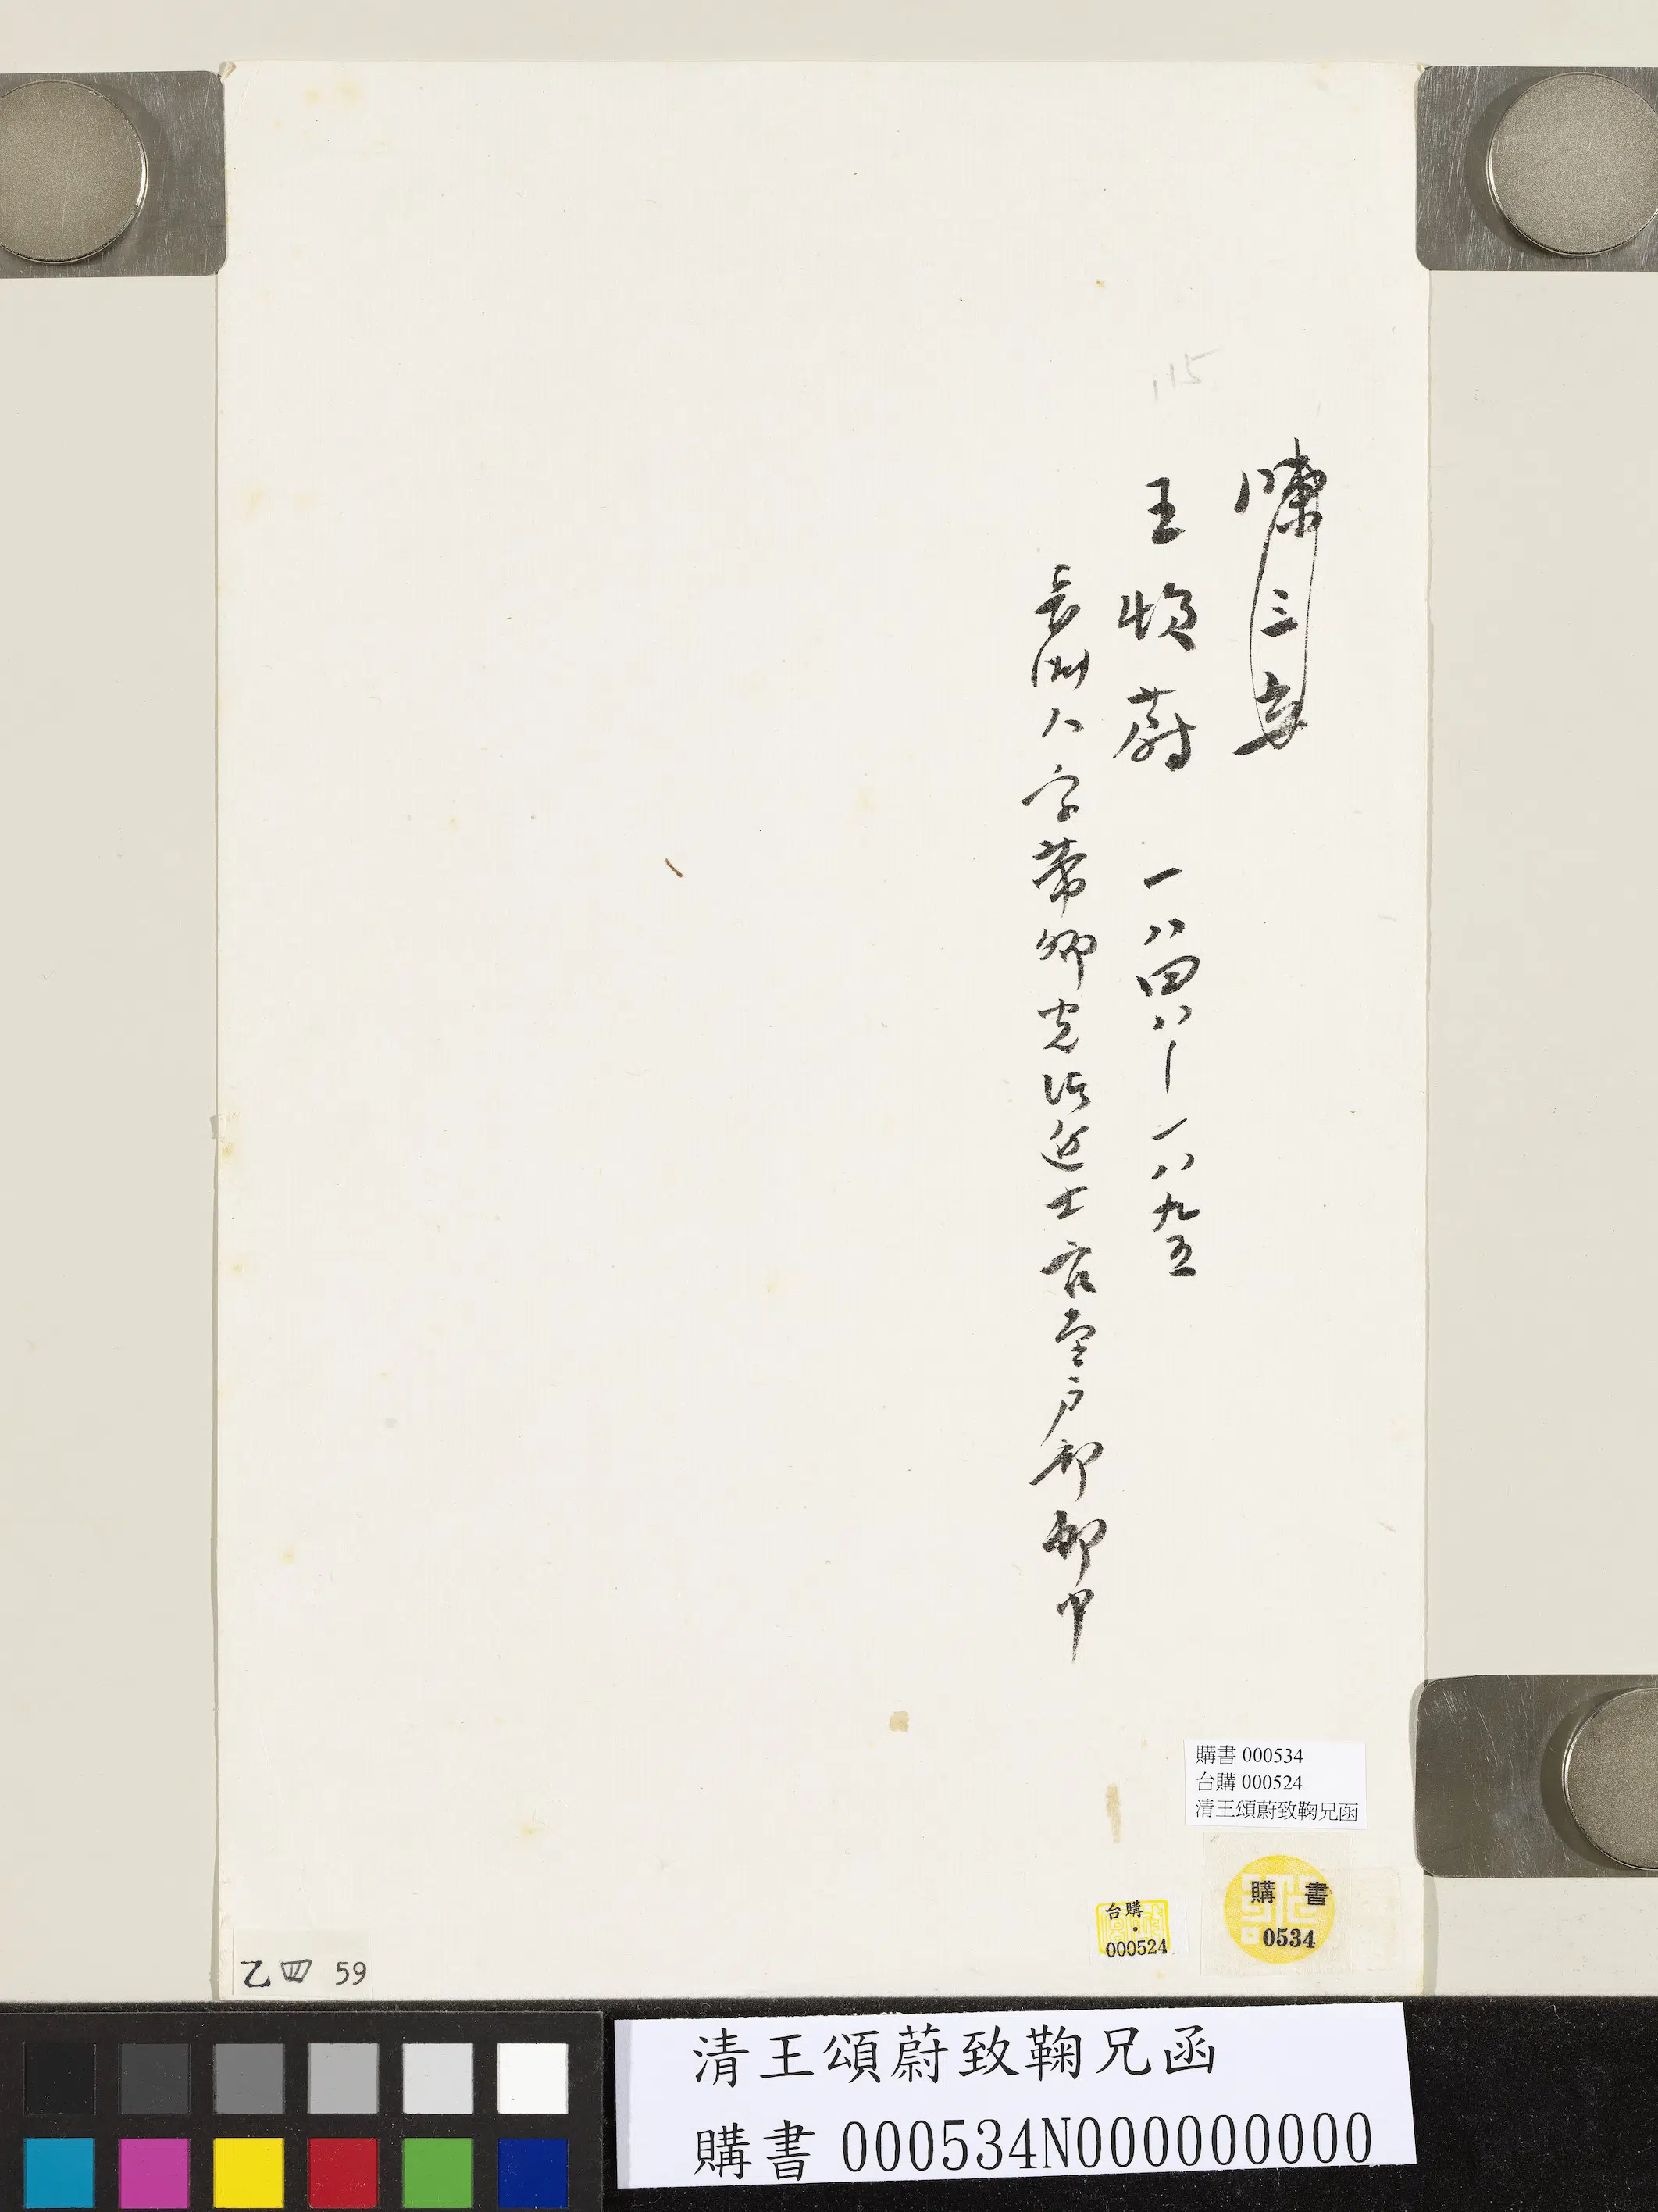 115
三
王頌蔚 一八四八—一八九五
長洲人字蒂卿光緒進士官至户部郎中
購書 000534
台購 000524
清王頌蔚致鞠兄函
購 書
0534
台購
000524
乙四 59
清王頌蔚致鞠兄函
購書 000534N000000000